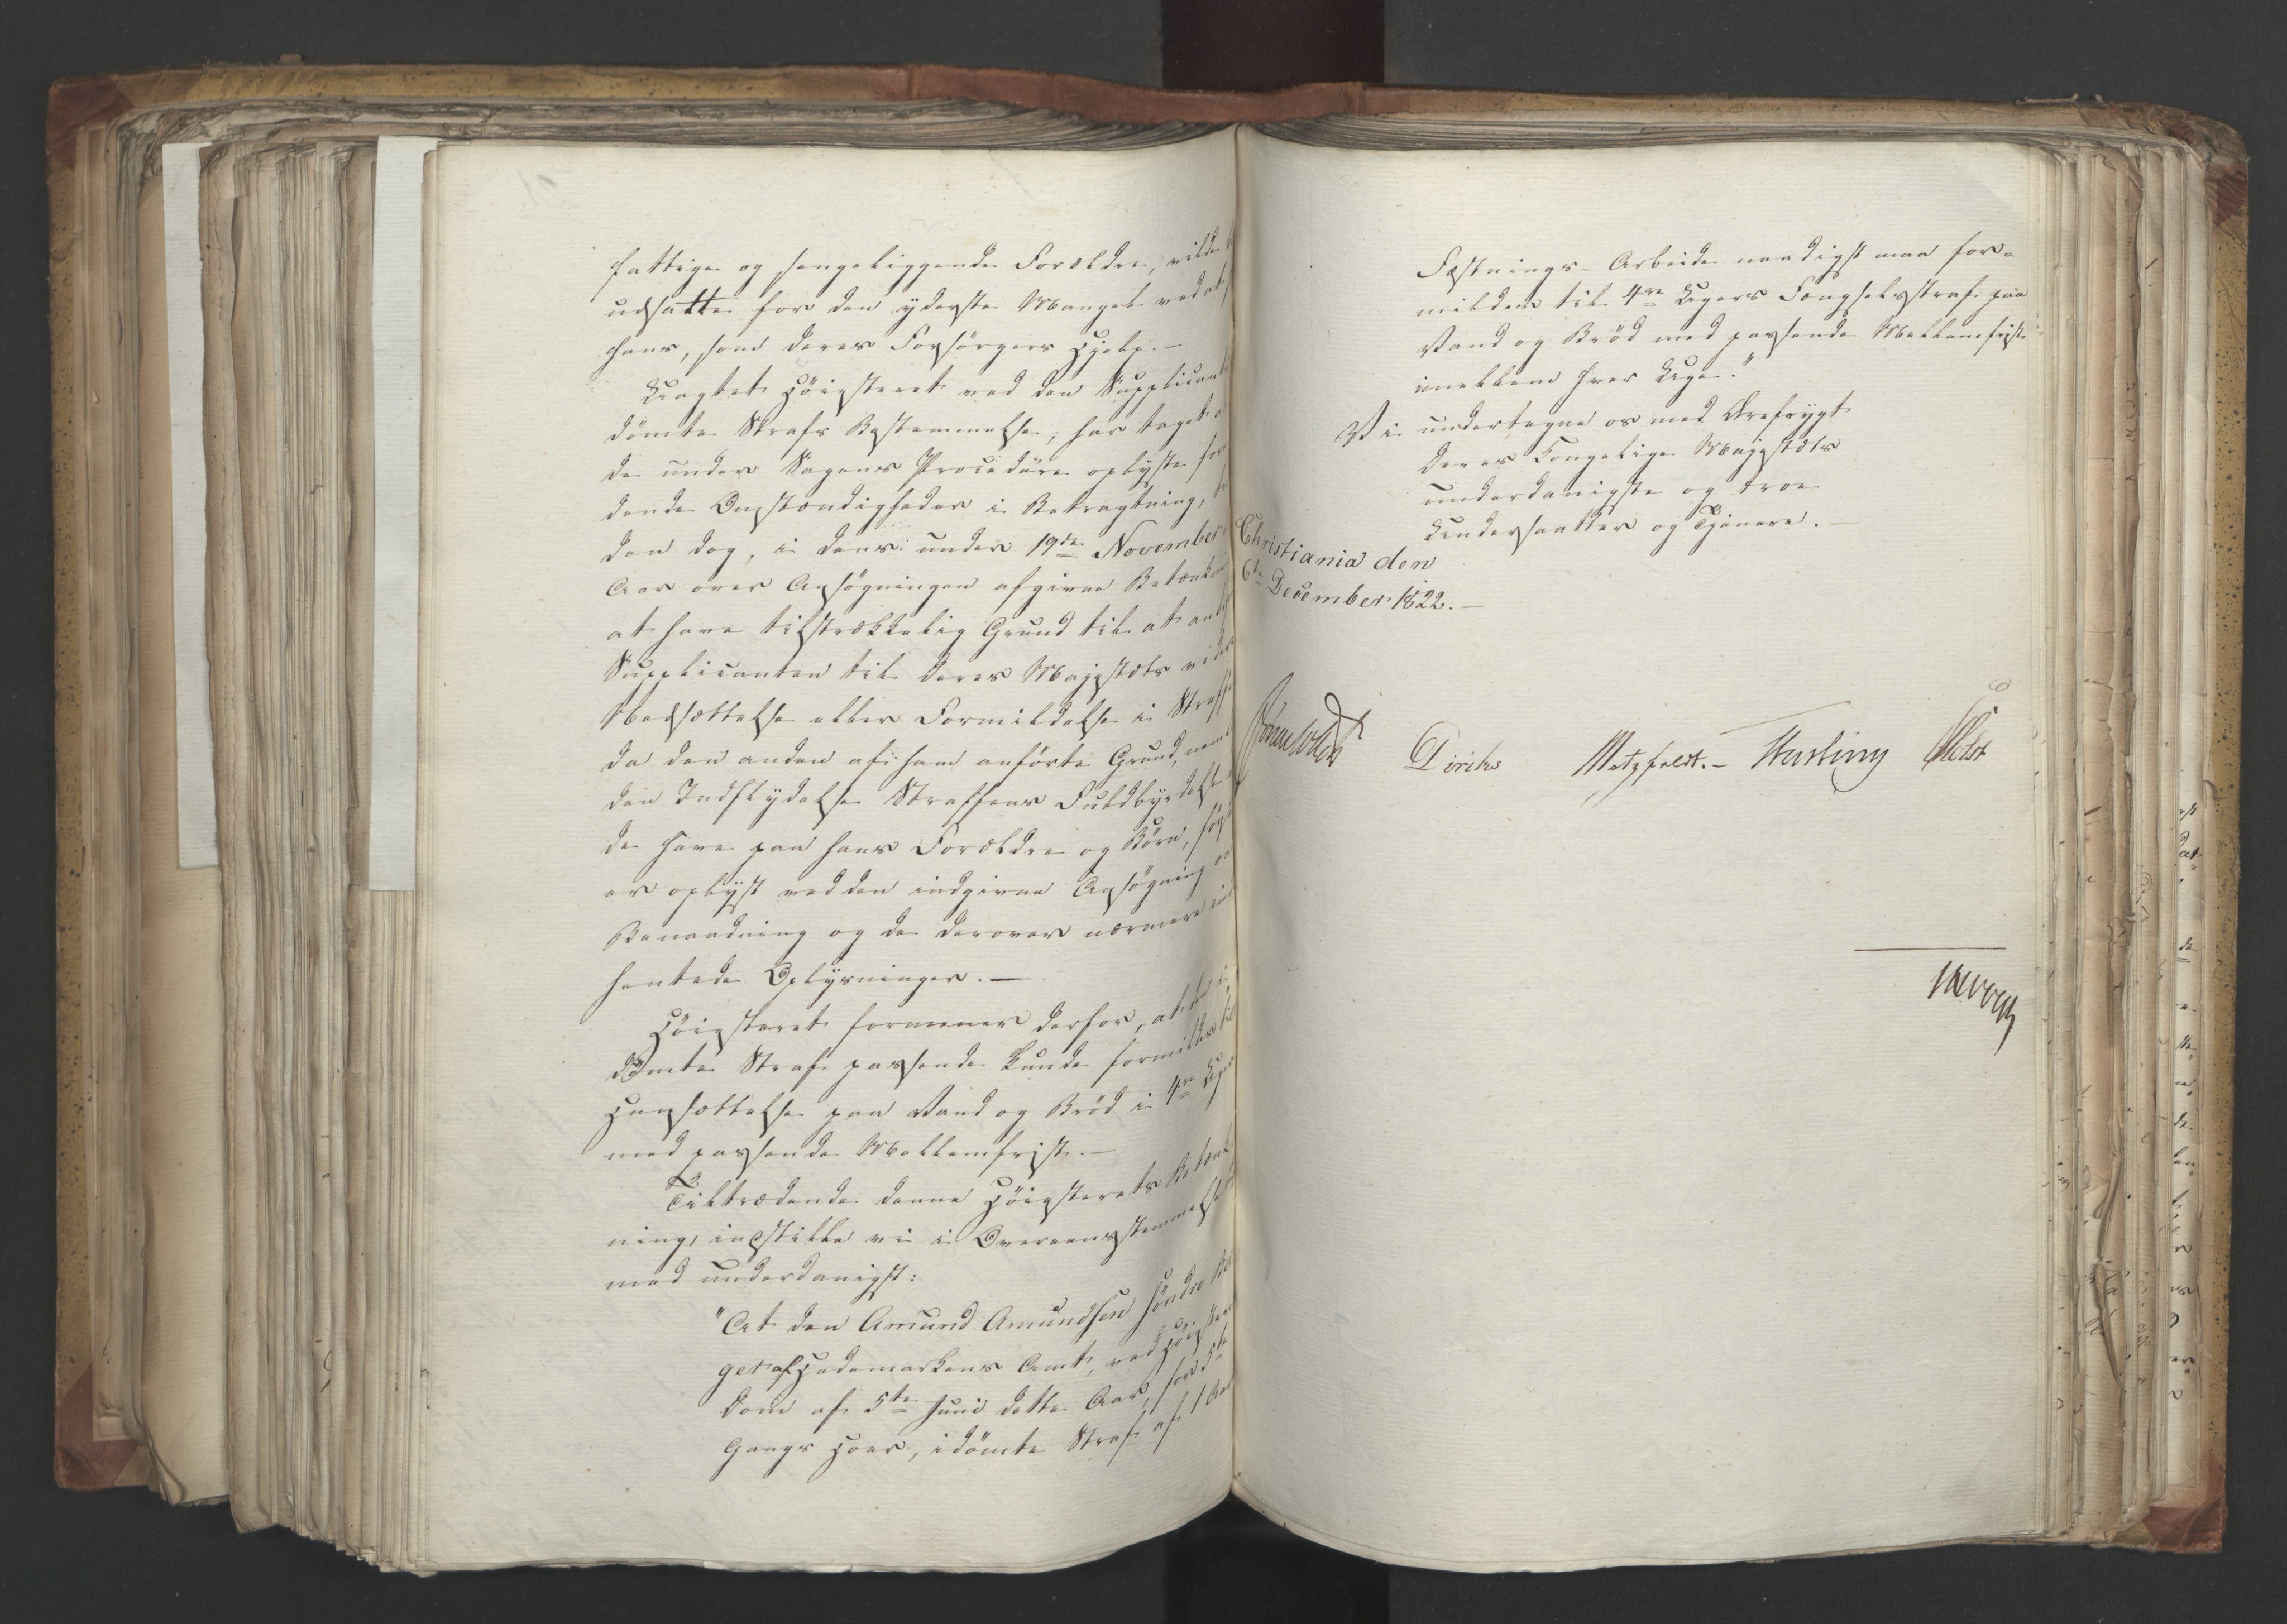 fattige og sengeliggende Forældre, vilde
udsatte for den yderste Mangel ved at
hans, som deres Forsörgers Hjelp. —
Uagtet Höiesteret ved den Supplicant
dömte Strafs Bestemmelse, har taget
de under Sagens Procedüre oplyste for
dende Omstændigheder i Betragtning,
den dog, i dens under 19de November
Aar over Ansögningen afgivne Betænk
at have tilstrækkelig Grund til at anb
Supplicanten til Deres Majestæts videre
Nedsættelse eller Formildelse i Straff
da den anden af ham anförte Grund, neml
den Indflydelse Straffens Fuldbyrdelse
de have paa hans Forældre og Börn, först
er oplyst ved den indgivne Ansögning om
Benaadning og de derover nærmere ind
hentede Oplysninger. —
Höiesteret formener derfor, at den i
dömte Straf passende kunde formildes til
Hensættelse paa Vand og Bröd i 4re Uger
med passende Mellemfrist. —
Tiltrædende denne Höiesterets Betænk
ning, indstille vi i Overeensstemmelse
med underdanigst:
"At den Amund Amundsen Söndre
ger af Hedemarkens Amt, ved Höiester
Dom af 5te Juni dette Aar, for 5te
Gangs Hoer, idömte Straf af 1 Aars
Fæstnings-Arbeide naadigst maa for-
mildes til 4re Ugers Fængselsstraf paa
Vand og Bröd med passende Mellemfrist
imellem hver Uge."
Vi undertegne os med Ærefrygt
Deres Kongelige Majestæts
underdanigste og troe
Undersaatter og Tjenere. —
Christiania den
6te December 1822. —
Sommerhielm Diriks Motzfeldt. — Hartiny Holst